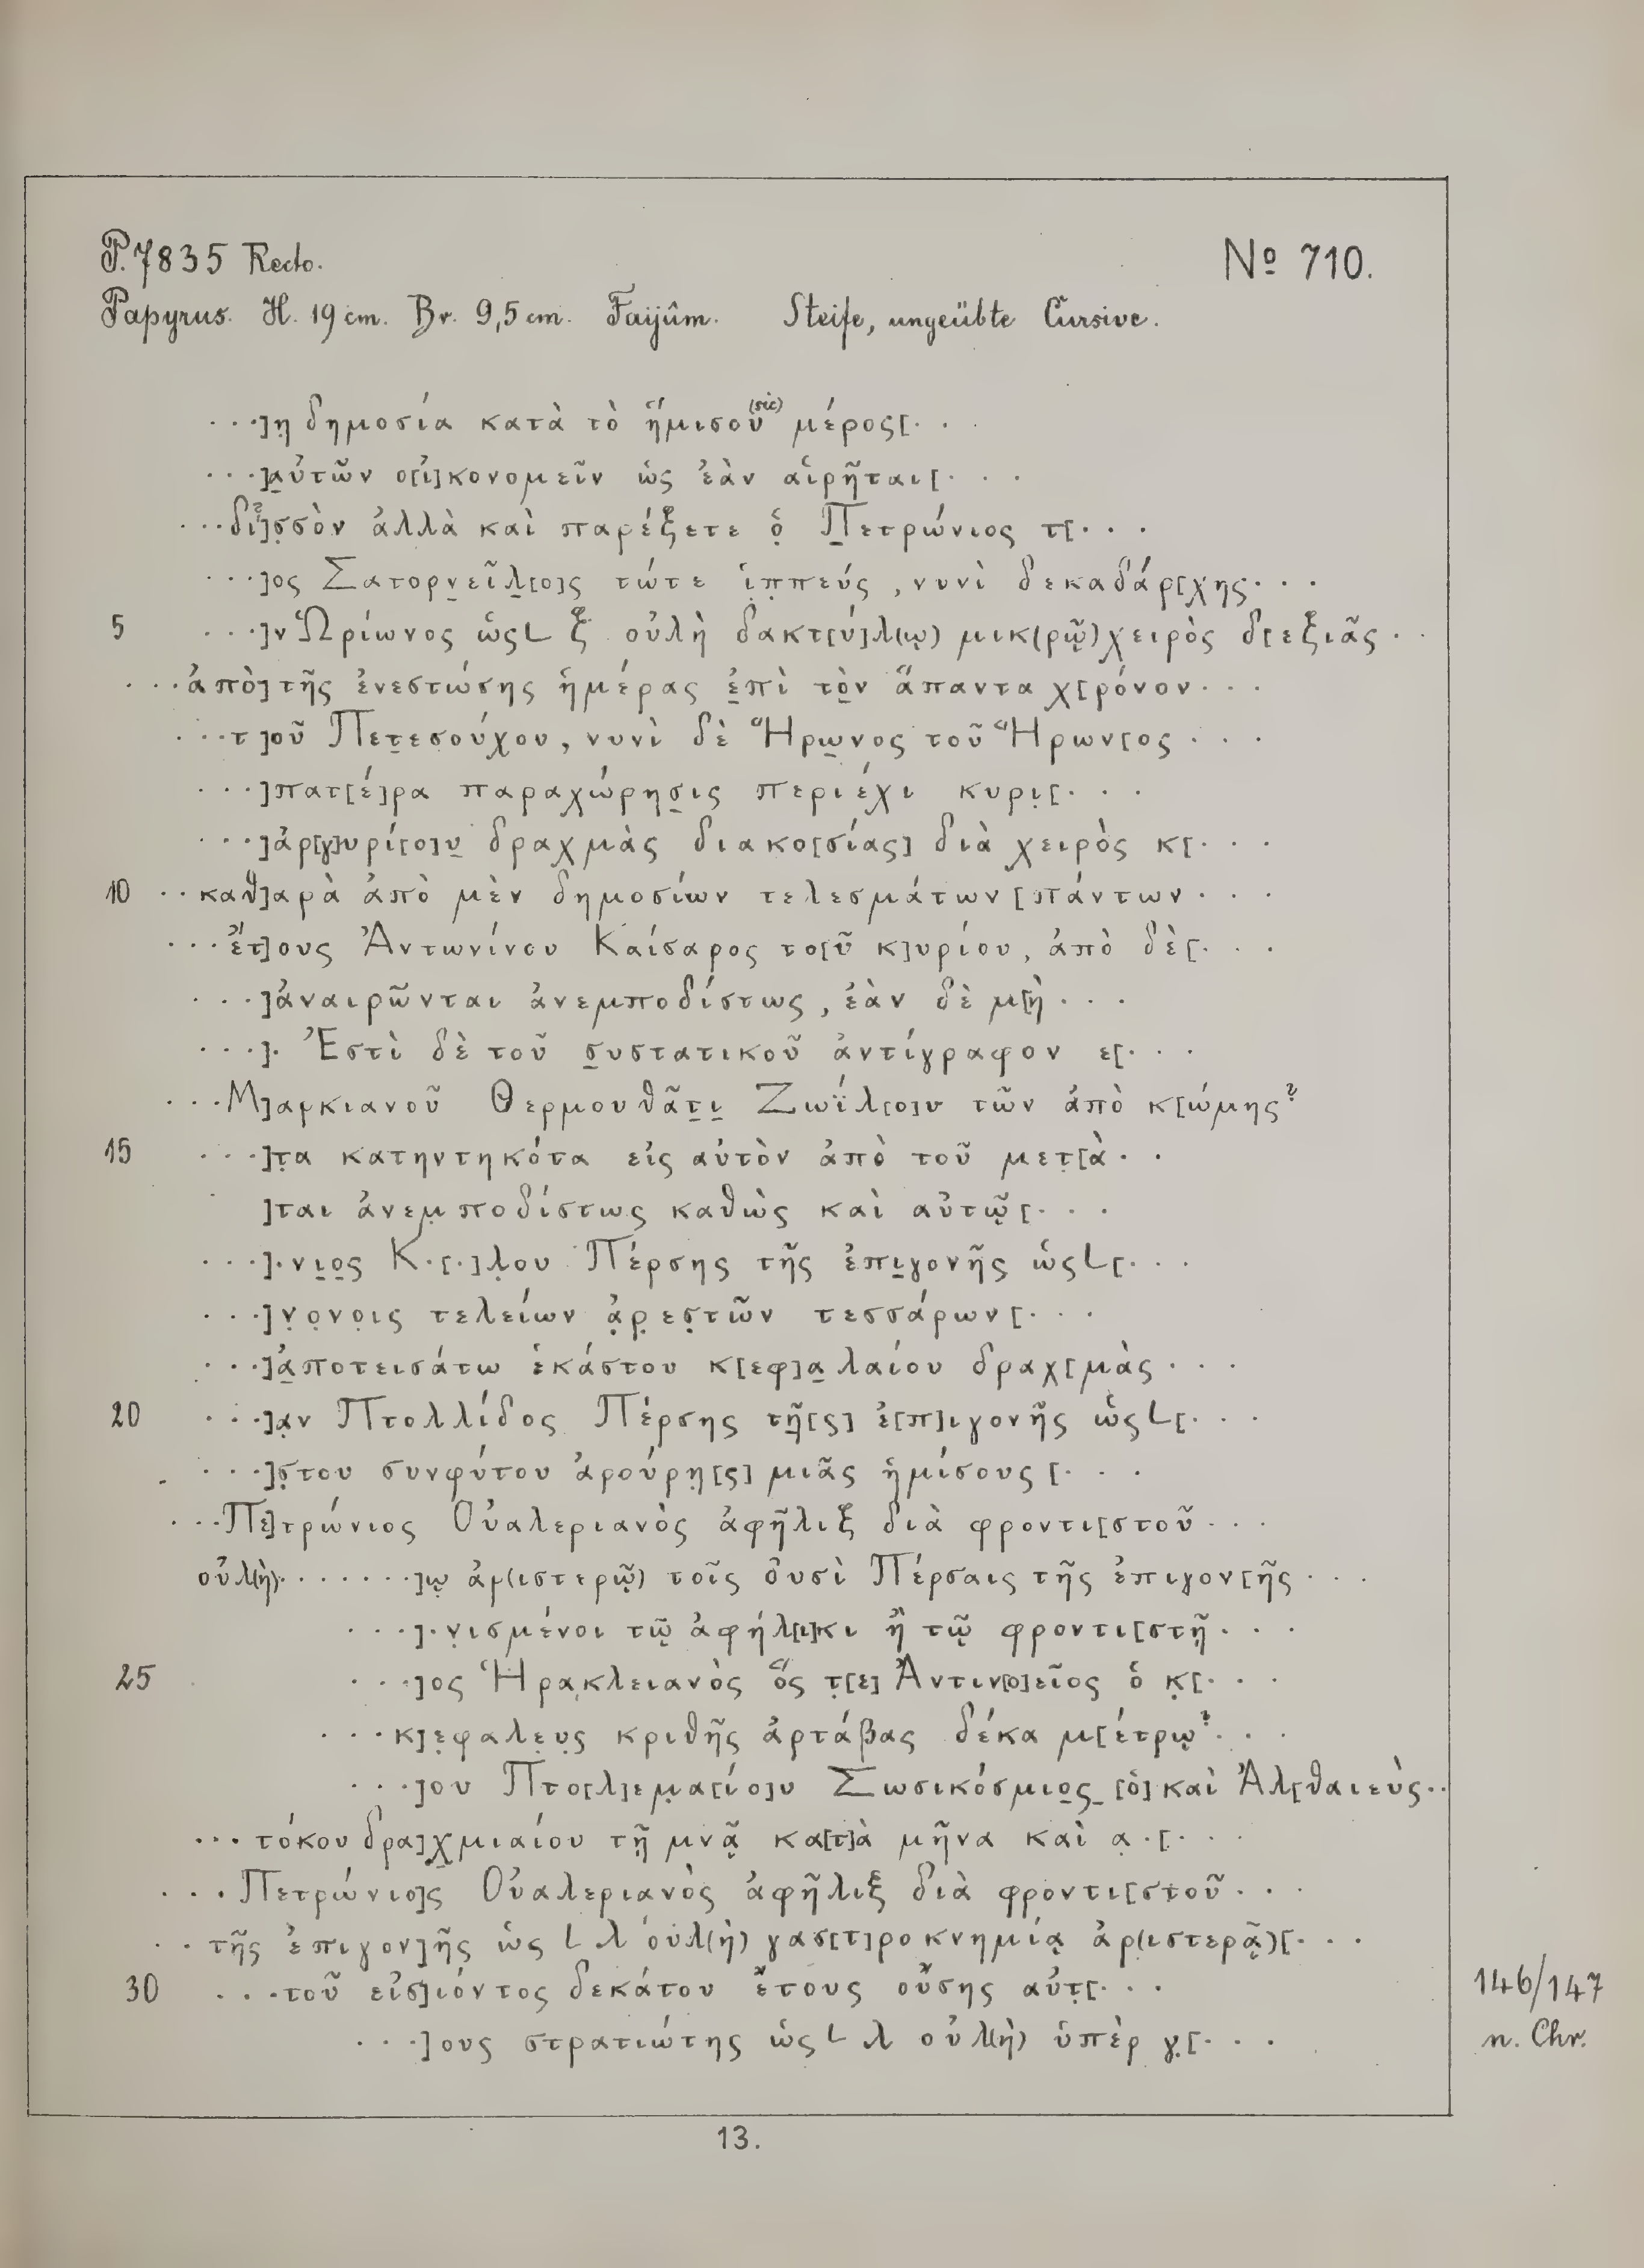 P. 7835 Recto. Nº 710.
Papyrus. H. 19 cm. Br. 9,5 cm. Faijûm. Steife, ungeübte Cursive.
· · ·]η̣ δημοσία κατὰ τὸ ἥμισου̃ (sic) μέρος[· ·
· · ·]α̣ὐτῶν ο[ἰ]κονομεῖν ὡς ἐὰν αἱρῆται[· · ·
· · ·δι?]σ̣σὸν ἀλλὰ καὶ παρέξετε ὁ̣ Π̣ετρώνιος τ[· · ·
· · ·]ος Σατορν̣εῖλ̣[ο]ς τώτε ἱπ̣πεύς, νυνὶ δεκαδάρ[χης· · ·
5 · · ·]ν Ὡρίωνος ὡς L ξ οὐλὴ δακτ[ύ]λ(ῳ) μικ(ρῷ) χειρὸς δ[εξιᾶς · ·
· · ·ἀπὸ] τῆς ἐνεστώσης ἡμέρας ἐ̣πὶ τὸ̣ν ἅπαντα χ[ρόνον · · ·
· · ·τ]οῦ Πετ̣εσούχου, νυνὶ δὲ Ἥρω̣νος τοῦ Ἥρων[ος · · ·
· · ·]πατ[έ]ρα παραχώρησ̣ις περιέχι κυρι̣[· · ·
· · ·]ἀρ[γ]υρί[ο]υ̣ δραχμὰς διακο[σίας] διὰ χειρὸς κ[· · ·
10 · · καθ]αρὰ ἀπὸ μὲν δημοσίων τελεσμάτων [πάντων · · ·
· · ·ἔτ]ους Ἀντωνίνου Καίσαρος το[ῦ κ]υρίου, ἀπὸ δὲ[· · ·
· · ·]ἀναιρῶνται ἀνεμποδίστως, ἐὰν δὲ μ[ὴ · · ·
· · ·]· Ἐστὶ δὲ τοῦ σ̣υστατικοῦ ἀντίγραφον ε[· · ·
· · ·Μ]αρκιανοῦ Θερμουθᾶτ̣ι̣ Ζωΐλ[ο]υ τῶν ἀπὸ κ[ώμης?
15 · · ·]τ̣α κατηντηκότα εἰς αὐτὸν ἀπὸ τοῦ μετ̣[ὰ · ·
]ται ἀνεμ̣ποδίστως καθὼς καὶ αὐτῷ[· · ·
· · ·]·νι̣ο̣ς Κ·[·]λ̣ου Πέρσης τῆς ἐπι̣γονῆς ὡς L[· · ·
· · ·]ν̣ο̣ν̣ο̣ις τελείων ἀ̣ρ̣εσ̣τῶν τεσσάρων[· · ·
· · ·]ἀ̣ποτεισάτω ἑκάστου κ[εφ]α̣λαίου δραχ[μὰς · · ·
20 · · ·]α̣ν Πτολλίδος Πέρσης τῆ̣[ς] ἐ[π]ιγονῆς ὡς L[· · ·
· · ·]σ̣του συνφύτου ἀρούρη̣[ς] μιᾶς ἡμίσους [· · ·
· · ·Πε]τρώνιος Οὐαλεριανὸς ἀφῆλιξ διὰ φροντι[στοῦ · · ·
οὐλ(ὴ)· · · · · · ·]ῳ ἀρ(ιστερῷ) τοῖς οὐσὶ Πέρσαις τῆς ἐπιγον[ῆς · · ·
· · ·]·ν̣ισμένοι τῷ ἀφήλ[ι]κι ἢ τῷ φροντι[στῇ · · ·
25 · · ·]ος Ἡρακλειανὸς ὅς τ̣[ε] Ἀντιν[ο]εῖος ὁ κ̣[· · ·
· · ·κ]ε̣φαλε̣υ̣ς κριθῆς ἀρτάβας δέκα μ[έτρῳ? · · ·
· · ·]ου Πτο[λ]εμ̣α[ίο]υ Σωσικόσμιο̣ς̣ [ὁ] καὶ Ἀλ[θαιεὺς · ·
· · · τόκου δρα]χ̣μιαίου τῇ μνᾷ κα[τ]ὰ μῆνα καὶ α̣·[· · ·
· · · Πετρώνιο]ς Οὐαλεριανὸς ἀφῆλιξ διὰ φροντι[στοῦ · · ·
· · τῆς ἐπιγον]ῆς ὡς L λ οὐλ(ὴ) γασ[τ]ροκνημίᾳ ἀρ(ιστερᾷ)[· · ·
30 · · ·τοῦ εἰσ]ιόντος δεκάτου ἔτους οὔσης αὐτ̣[· · · 146/147
· · ·]ους στρατιώτης ὡς L λ οὐλ(ὴ) ὑπὲρ γ̣[· · · n. Chr.
13.